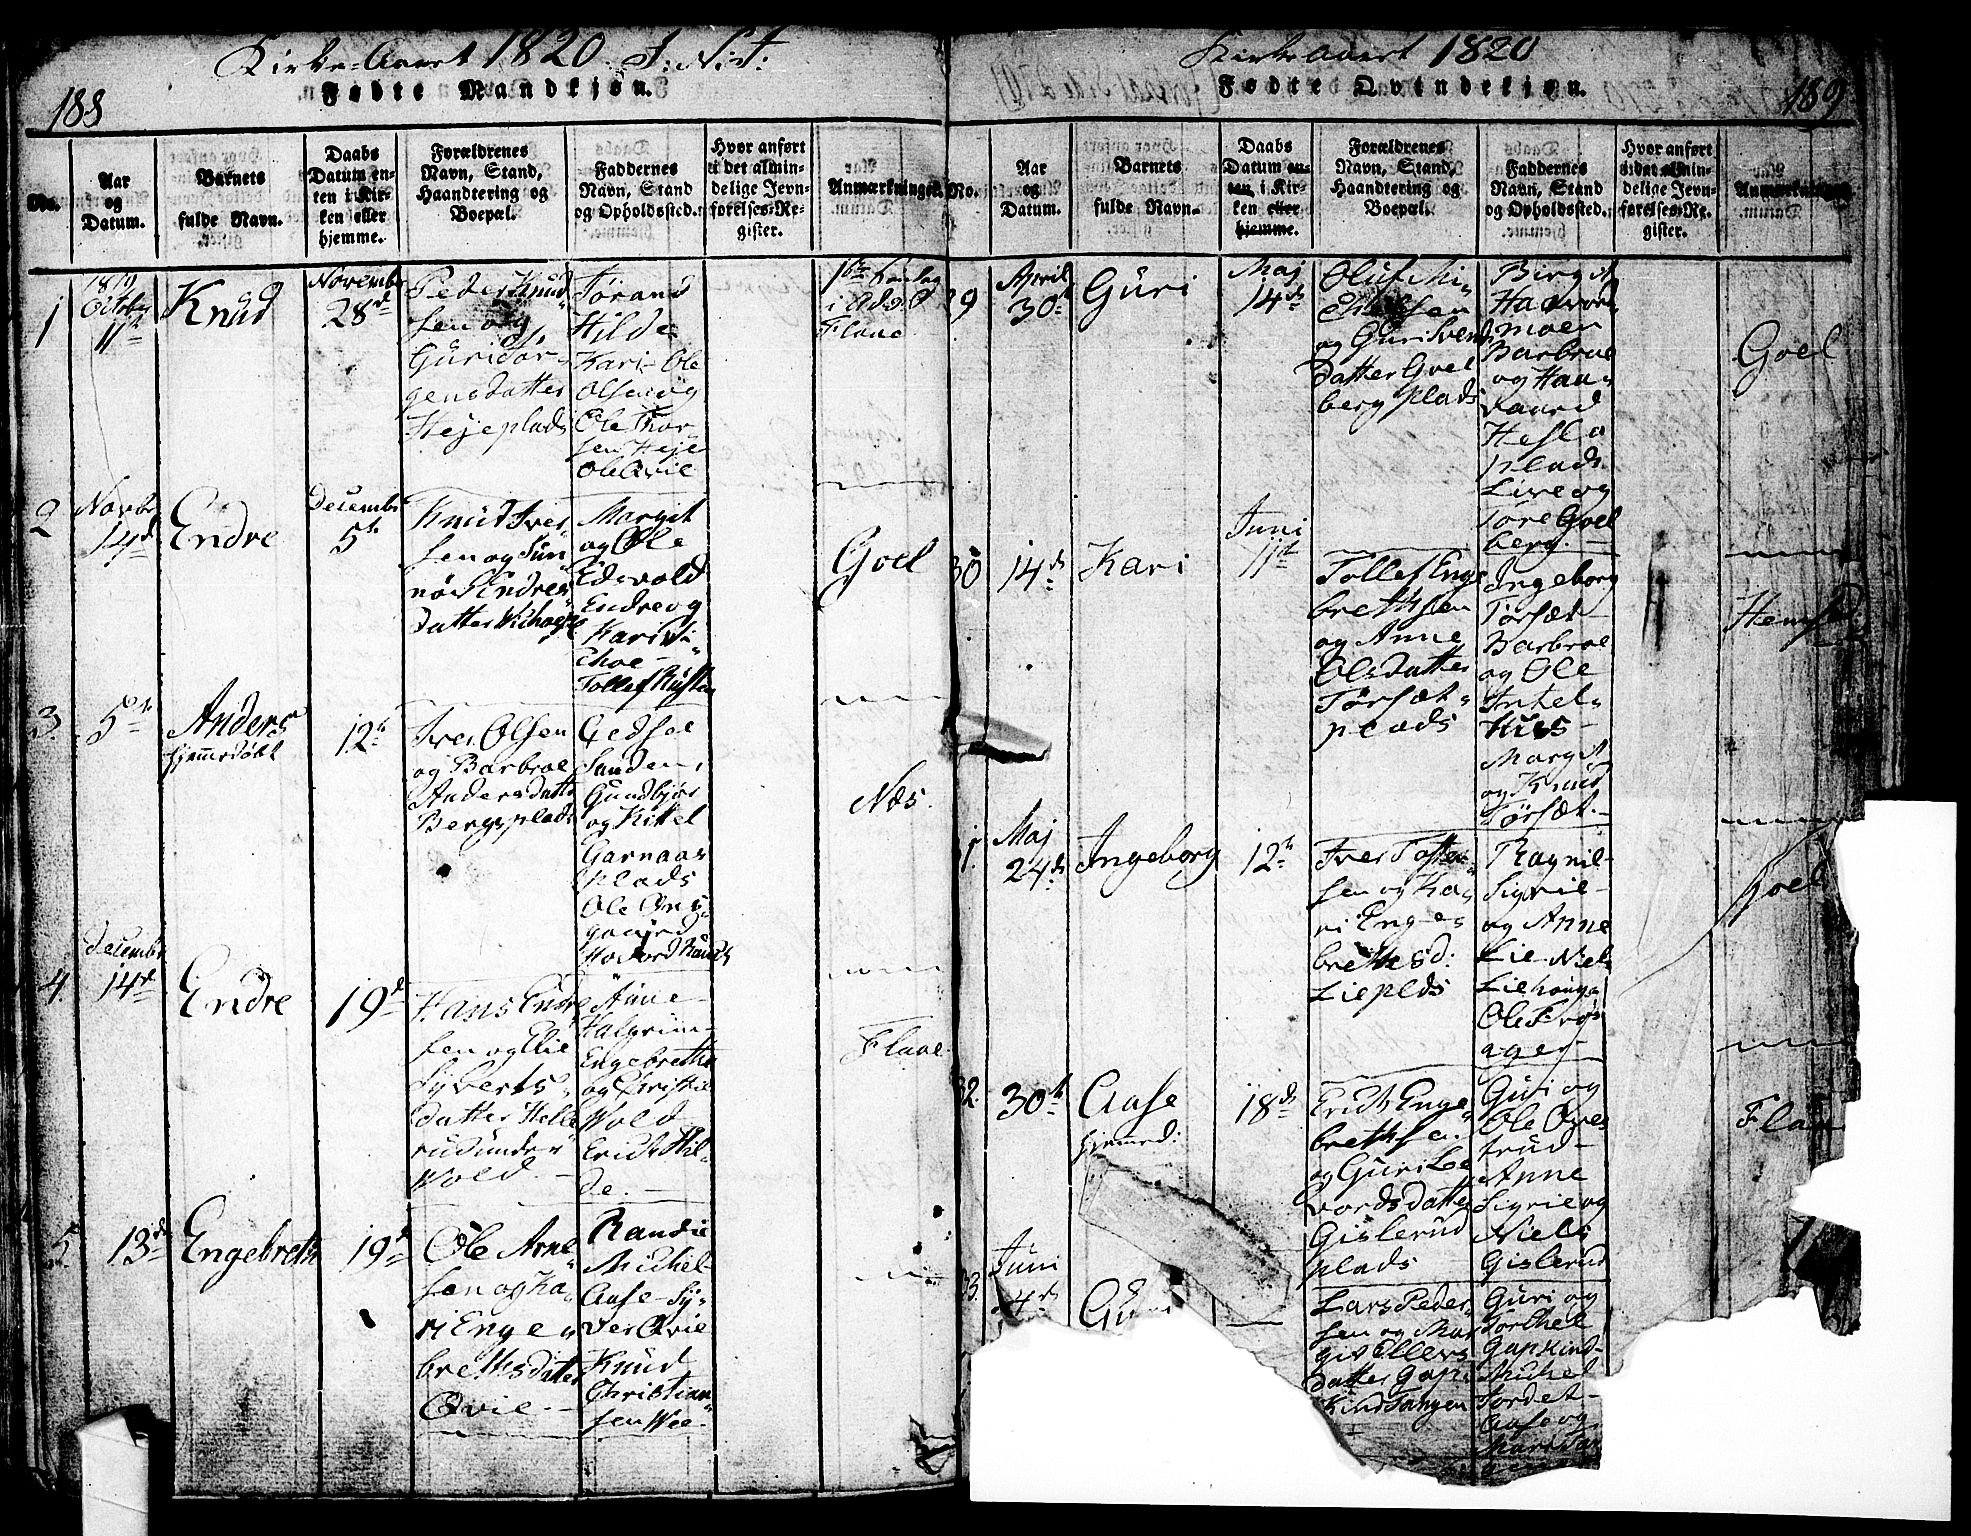 Kirke-Aaret 1820. I. N. I.
188
Fødte Mandkjøn.
No.
Aar
og
Datum.
Barnets
fulde Navn.
Daabs
Datum en-
ten i Kir-
ken eller
hjemme.
Forældrenes
Navn, Stand,
Haandtering og
Boepæl.
Faddernes
Navn, Stand
og Opholdssted.
Hvor anført
i det almin-
delige Jevn-
førelses-Re-
gister.
Anmærkninger.
1
1819
October
11te
Knud
Novembr
28d
Peder Knud-
sen og
Guri Jør-
gensdatter
Hejeplads
Tørand
Hilde
Kari - Ole
Olsen og
Ole Thor-
sen Heje
Ole Qvie
1te Søndag
i Adv.
Flaae
2
Novbr
14d
Endre
Decembr
5t.
Knud Iver-
sen og Sün-
nøv Endres
datter
Margit
og Ole
Edsvold
Endre og
Kari
Ehoe -
Tollef
Goel
3.
5te
Anders
hjemmedøbt
12te
Iver Olsen
og Barbroe
Andersdatter
Bergsplads
Gedsel
Sanden,
Gundbjør
og Kittel
Garnaas
plads
Ole
gaard
Næs.
4.
Decembr
14de
Endre
19d
Hans Endre
sen og Elie
Syverts-
datter Helle
rud under
Wold. -
Anne
Halgrim -
Engebreth
og Christie
Wold
Erich Hil-
de. -
Flaae.
5.
13de
Engebreth
19d
Ole Arne
sen og Ka-
ri Enge-
brethsdatter
Qvie. -
Randie
Michel -
Aase - Sy-
ver Qvie
Knud
Christian-
sen Wee -
Kirke Aaret 1820
189
Fødte Qvindekjøn.
No.
Aar
og
Datum.
Barnets
fulde Navn.
Daabs
Datum en-
ten i Kir-
ken eller
hjemme.
Forældrenes
Navn, Stand,
Haandtering og
Boepæl.
Faddernes
Navn, Stand
og Opholdssted.
Hvor anført
i det almin-
delige Jevn-
førelses-Re-
gister.
Anmærkninger
29
April
30te
Guri
Maj
14de
Oluf Mi-
chelsen
og Guri Svends
datter Goel
berg plads
Birgit
Haavor-
moen
Barbroe
og Haa-
vaard
Hesla
plads
Live og
Tore Goel
berg. -
Goel
30
14de
Kari
Juni
11te
Tollef Enge
brethsen
og Anne
Olsdatter
Torset-
plads
Ingeborg
Torset -
Barbroe
og Ole
Intel-
huus -
Margit
og Knud
Torset. -
1.
Maj
24de
Ingeborg
12te
Iver Tosten-
sen og Ka-
ri Enge-
brethsd:
Lieplds
Ragnil -
Sigrie -
og Anne
Lie - Niels
Liehouga
Ole
ager -
Goel
32.
30te
Aase
hjemmed:
18de
Erich Enge-
brethsen.
og Guri Lee
vordsdatter
Gislerud
plads
Guri og
Ole
trud -
Anne
Sigrie og
Niels
Gislerud
Flaa
33.
Juni
4de
Guri
Lars Peder-
sen og Mar
git Ellers
datter Gap-
kind Tangen
Guri og
Torchel
Gapkind -
Michel
Tordet -
Aase og